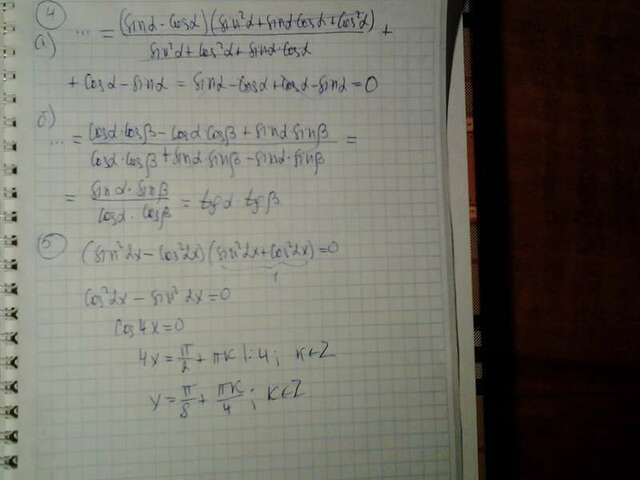 4
а) ... = (sinα - cosα)(sin²α + sinα cosα + cos²α) / sin²α + cos²α + sinα·cosα +
+ cosα - sinα = sinα - cosα + cosα - sinα = 0
б)
... = cosα·cosβ - cosα cosβ + sinα·sinβ / cosα·cosβ + sinα·sinβ - sinα·sinβ =
= sinα·sinβ / cosα·cosβ = tgα tgβ
5 (sin²2x - cos²2x)(sin²2x + cos²2x) = 0
1
cos²2x - sin²2x = 0
cos4x = 0
4x = π/2 + πk |:4; k∈Z
x = π/8 + πk/4; k∈Z